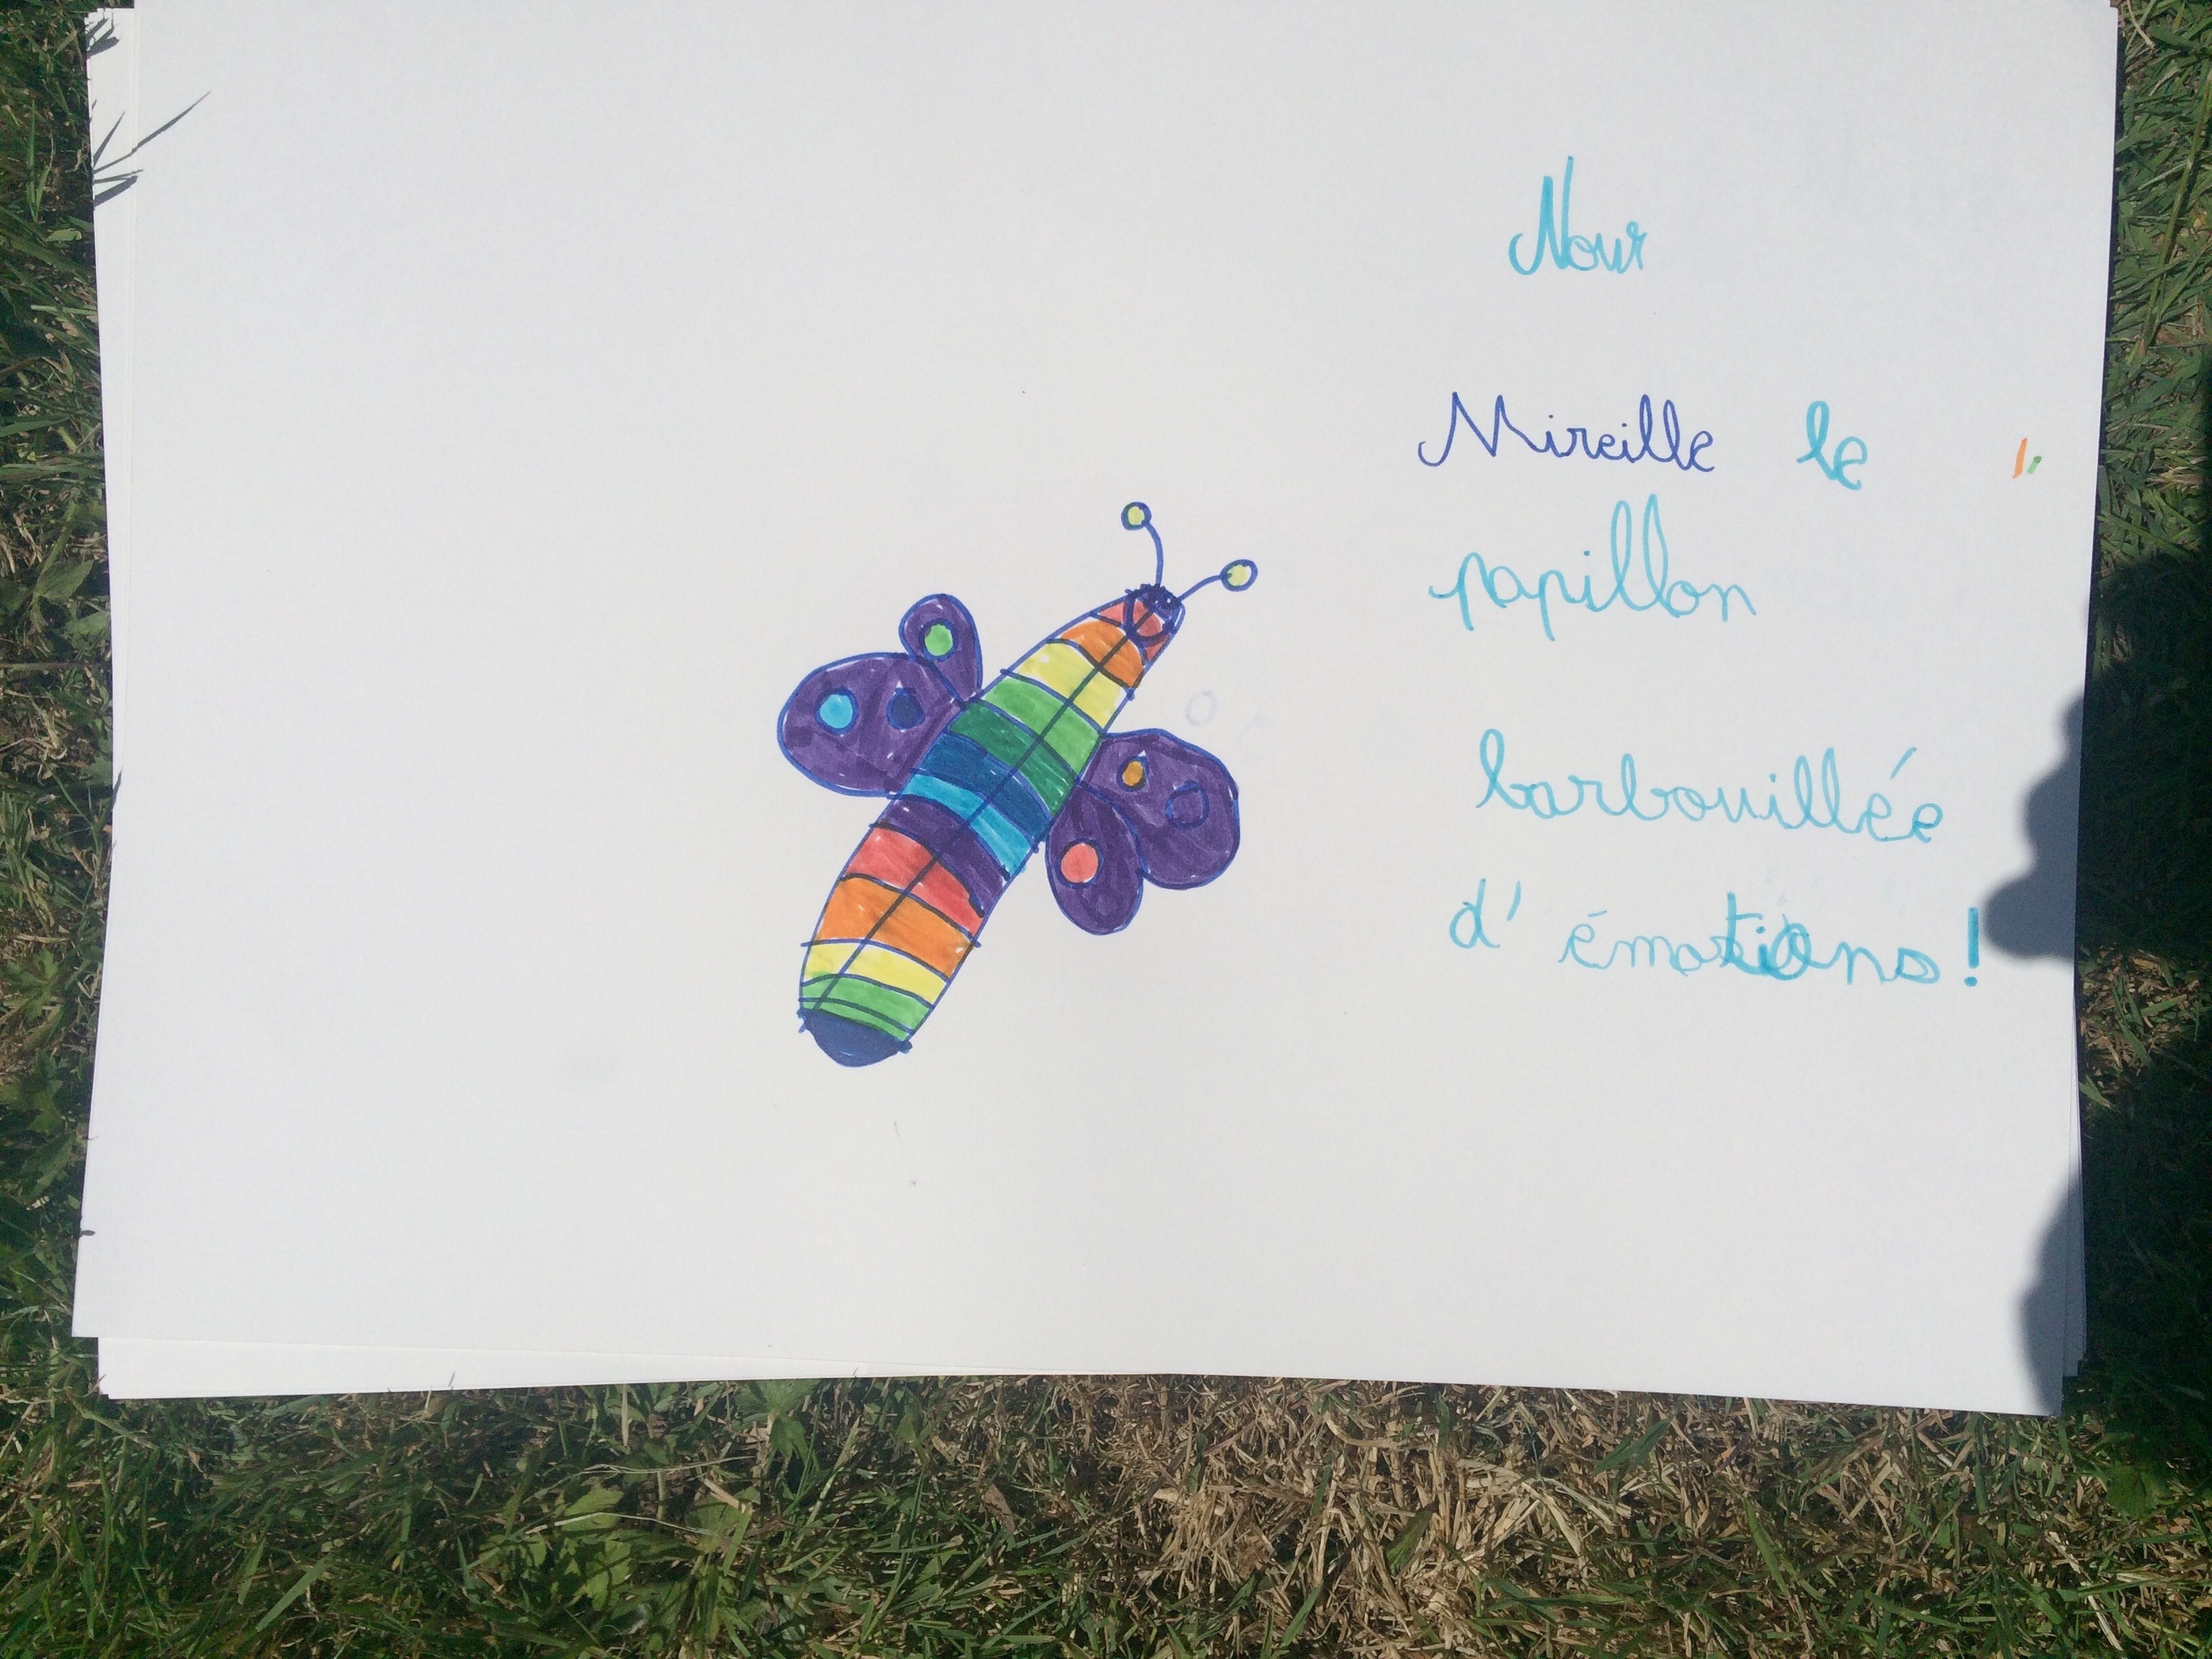 Nour
Mireille le
papillon
barbouillée
d'émotions!